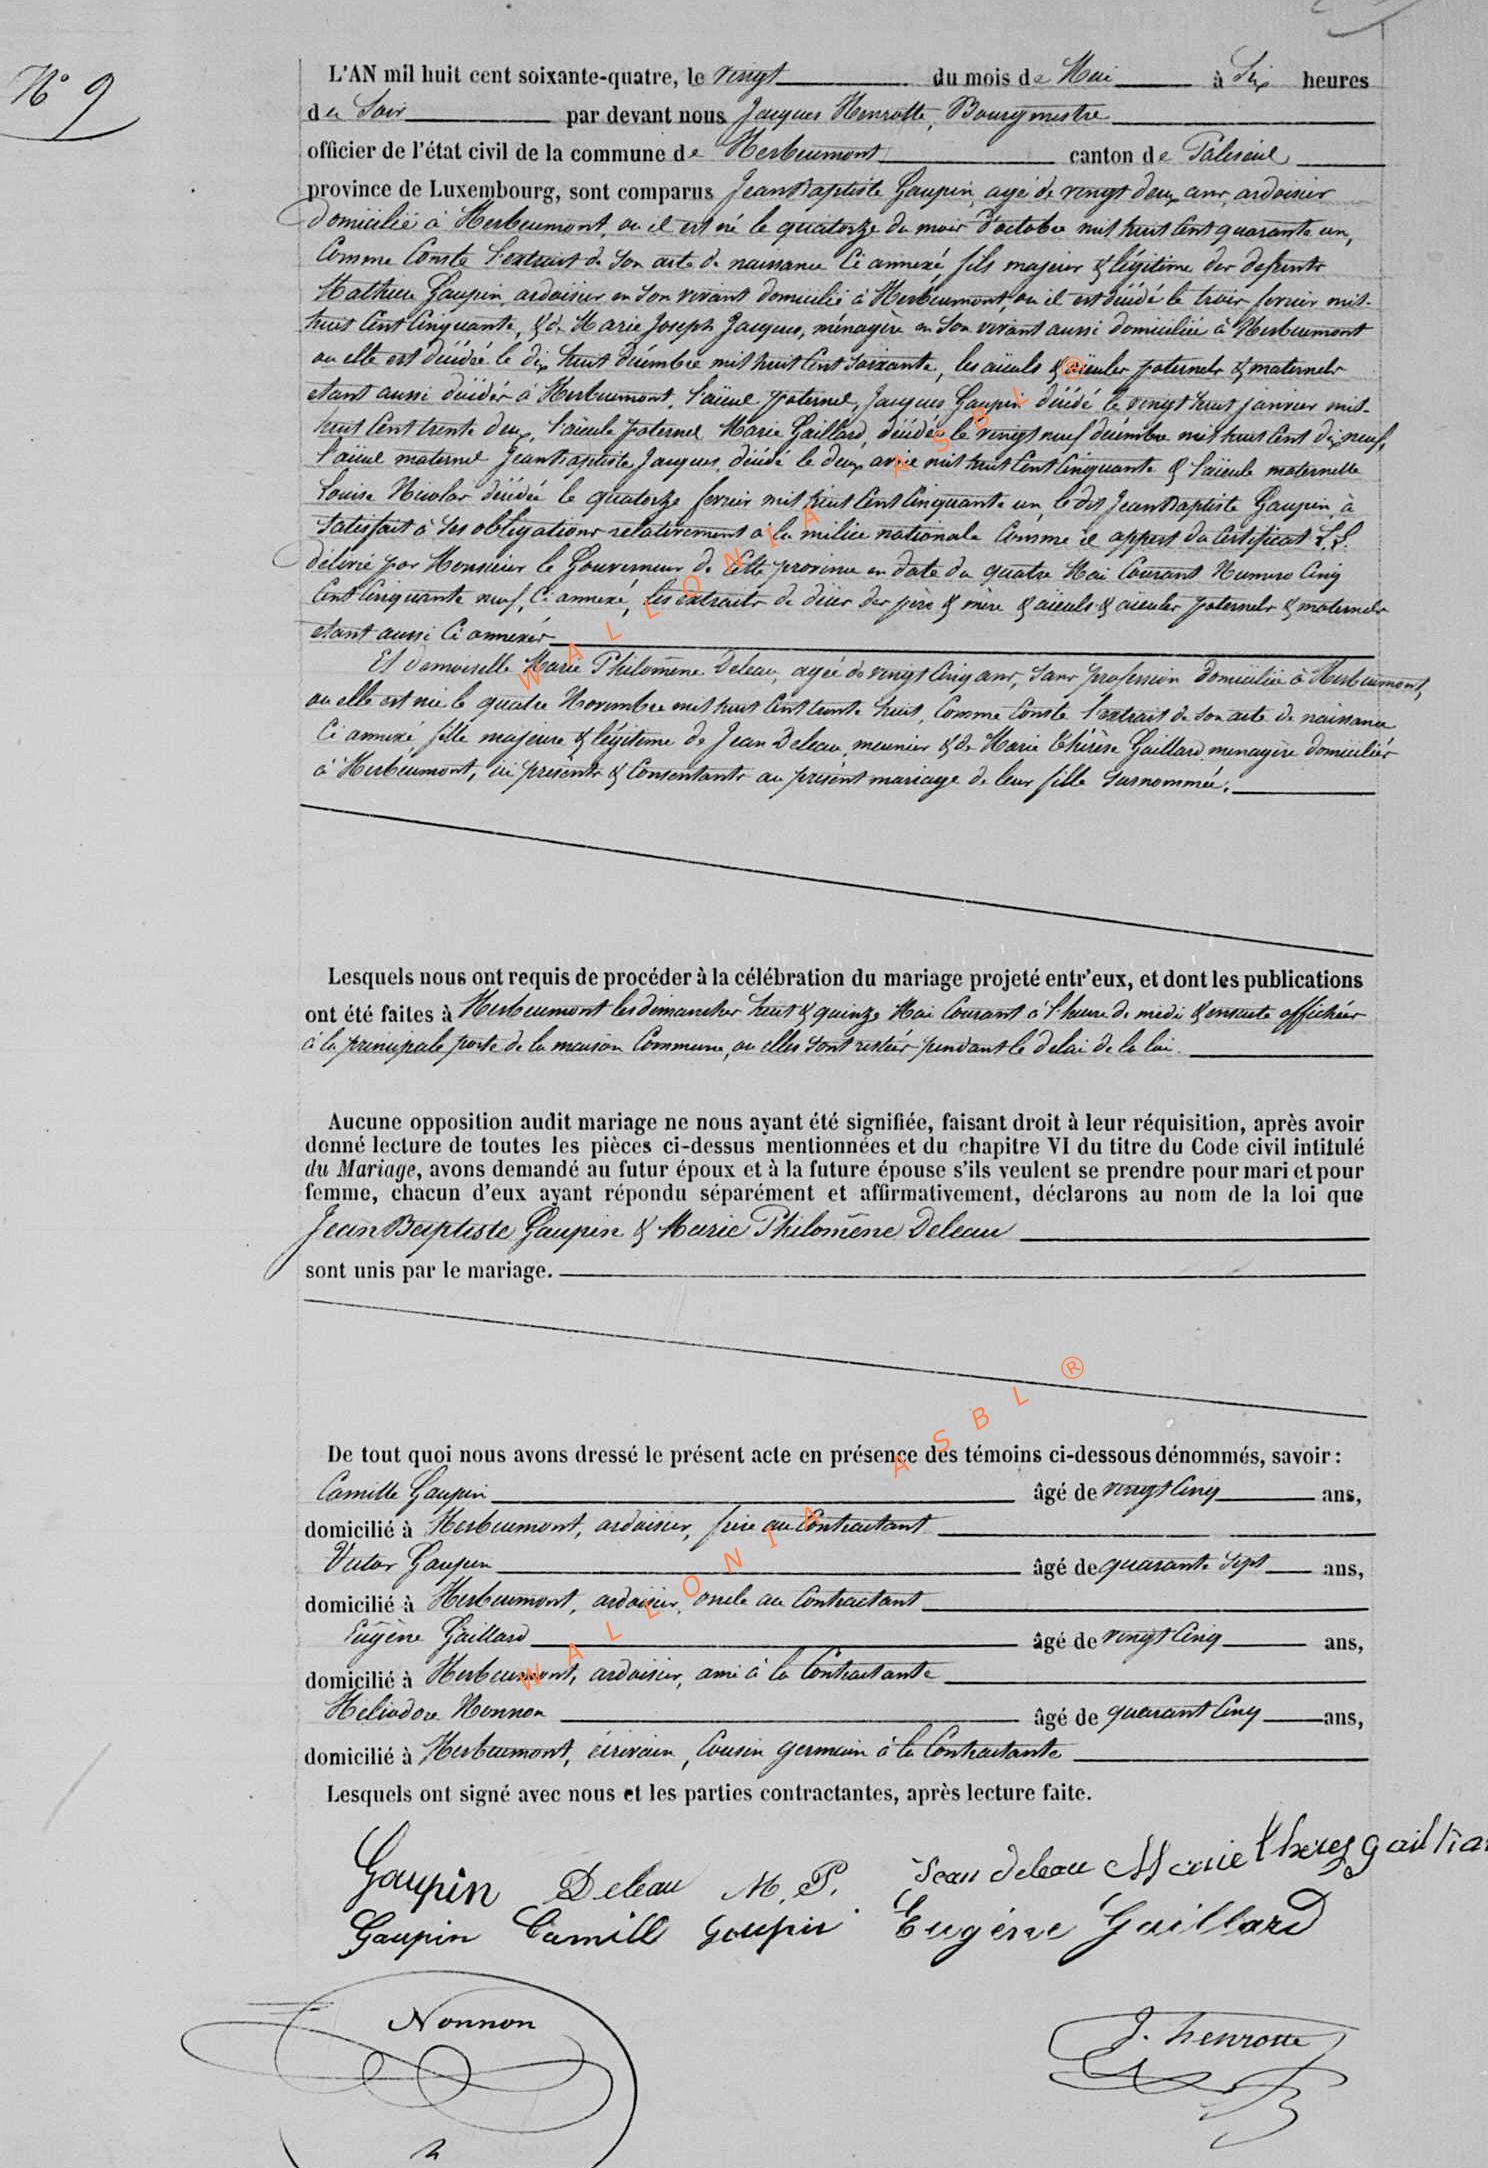 N° 9
L'AN mil huit cent soixante-quatre, le vingt du mois de Mai à Six heures
du Soir par devant nous Jacques Henrotte, Bourgmestre
officier de l'état civil de la commune de Herbeumont canton de Paliseul
province de Luxembourg, sont comparus Jean Baptiste Gaupin, agé de vingt deux ans, ardoisier
domicilié à Herbeumont, ou il est né le quatorze du mois d'octobre mil huit Cent quarante un,
Comme Conste l'extrait de Son acte de naissance Ci annexé, fils majeur & légitime des defunts
Mathieu Gaupin, ardoisier en Son vivant domicilié à Herbeumont, ou il est décédé le trois fevrier mil-
huit Cent Cinquante, & de Marie Joseph Jacques, ménagère en Son vivant aussi domiciliée à Herbeumont
ou elle est décédée le dix huit décembre mil huit Cent Soixante, les aïeuls & aïeules paternels & maternels
etant aussi décédés à Herbeumont, l'aïeul paternel, Jacques Gaupin décédé le vingt huit janvier mil-
huit Cent trente deux, l'aïeule paternel Marie Gaillard, décédée le vingt neuf décembre mil huit Cent dix neuf,
l'aïeul maternel Jean Baptiste Jacques, décédé le deux avril mil huit Cent Cinquante & l'aïeule maternelle
Louise Nicolas décédée le quatorze fevrier mil huit Cent Cinquante un, le dit Jean Baptiste Gaupin à
Satisfait à Ses obligations relativement à la milice nationale Comme il appert du Certificat L.L.
délivré par Monsieur le Gouverneur de Cette province en date du quatre Mai Courant Numero Cinq
Cent Cinquante neuf, Ci annexé, les extraits de décès des père & mère & aïeuls & aïeules paternels & maternels
etant aussi Ci annexés
Et demoiselle Marie Philomène Deleau, agée de vingt Cinq ans, Sans profession domiciliée à Herbeumont,
ou elle est née le quatre Novembre mil huit Cent trente huit, Comme Conste l'extrait de Son acte de naissance
Ci annexé fille majeure & légitime de Jean Deleau, meunier & de Marie Thérèse Gaillard ménagère domiciliés
à Herbeumont, ici présents & Consentants au présent mariage de leur fille Susnommée.
Lesquels nous ont requis de procéder à la célébration du mariage projeté entr'eux, et dont les publications
ont été faites à Herbeumont les dimanches huit & quinze Mai Courant à l'heure de midi & ensuite affichées
à la principale porte de la maison Commune, ou elles Sont restées pendant le delai de la loi.
Aucune opposition audit mariage ne nous ayant été signifiée, faisant droit à leur réquisition, après avoir
donné lecture de toutes les pièces ci-dessus mentionnées et du chapitre VI du titre du Code civil intitulé
du Mariage, avons demandé au futur époux et à la future épouse s'ils veulent se prendre pour mari et pour
femme, chacun d'eux ayant répondu séparément et affirmativement, déclarons au nom de la loi que
Jean Baptiste Gaupin & Marie Philomène Deleau
sont unis par le mariage.
De tout quoi nous avons dressé le présent acte en présence des témoins ci-dessous dénommés, savoir :
Camille Gaupin âgé de vingt Cinq ans,
domicilié à Herbeumont, ardoisier, frère au Contractant
Victor Gaupin âgé de quarante Sept ans,
domicilié à Herbeumont, ardoisier, oncle au Contractant
Eugène Gaillard âgé de vingt Cinq ans,
domicilié à Herbeumont, ardoisier, ami à la Contractante
Héliodore Nonnon âgé de quarant Cinq ans,
domicilié à Herbeumont, écrivain, Cousin germain à la Contractante
Lesquels ont signé avec nous et les parties contractantes, après lecture faite.
Gaupin Deleau M. P. Jean deleau Marie therez gaillia
Gaupin Camill Goupin Eugéne Gaillard
Nonnon J. henrotte
WALLONIA ASBL ®
WALLONIA ASBL ®